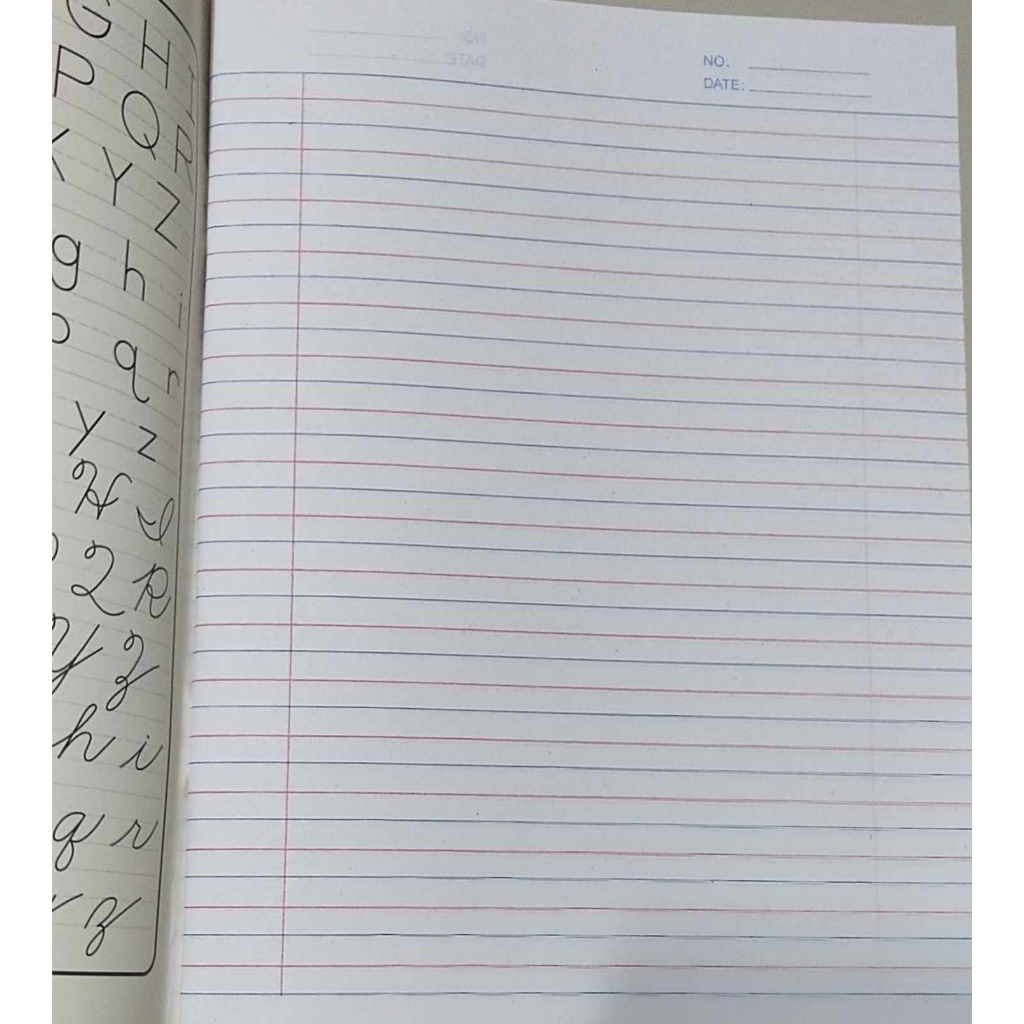 G H I
P Q R
X Y Z
g h i
p q r
y z
H I
Q R
Y Z
h i
q r
y z
NO:
DATE: